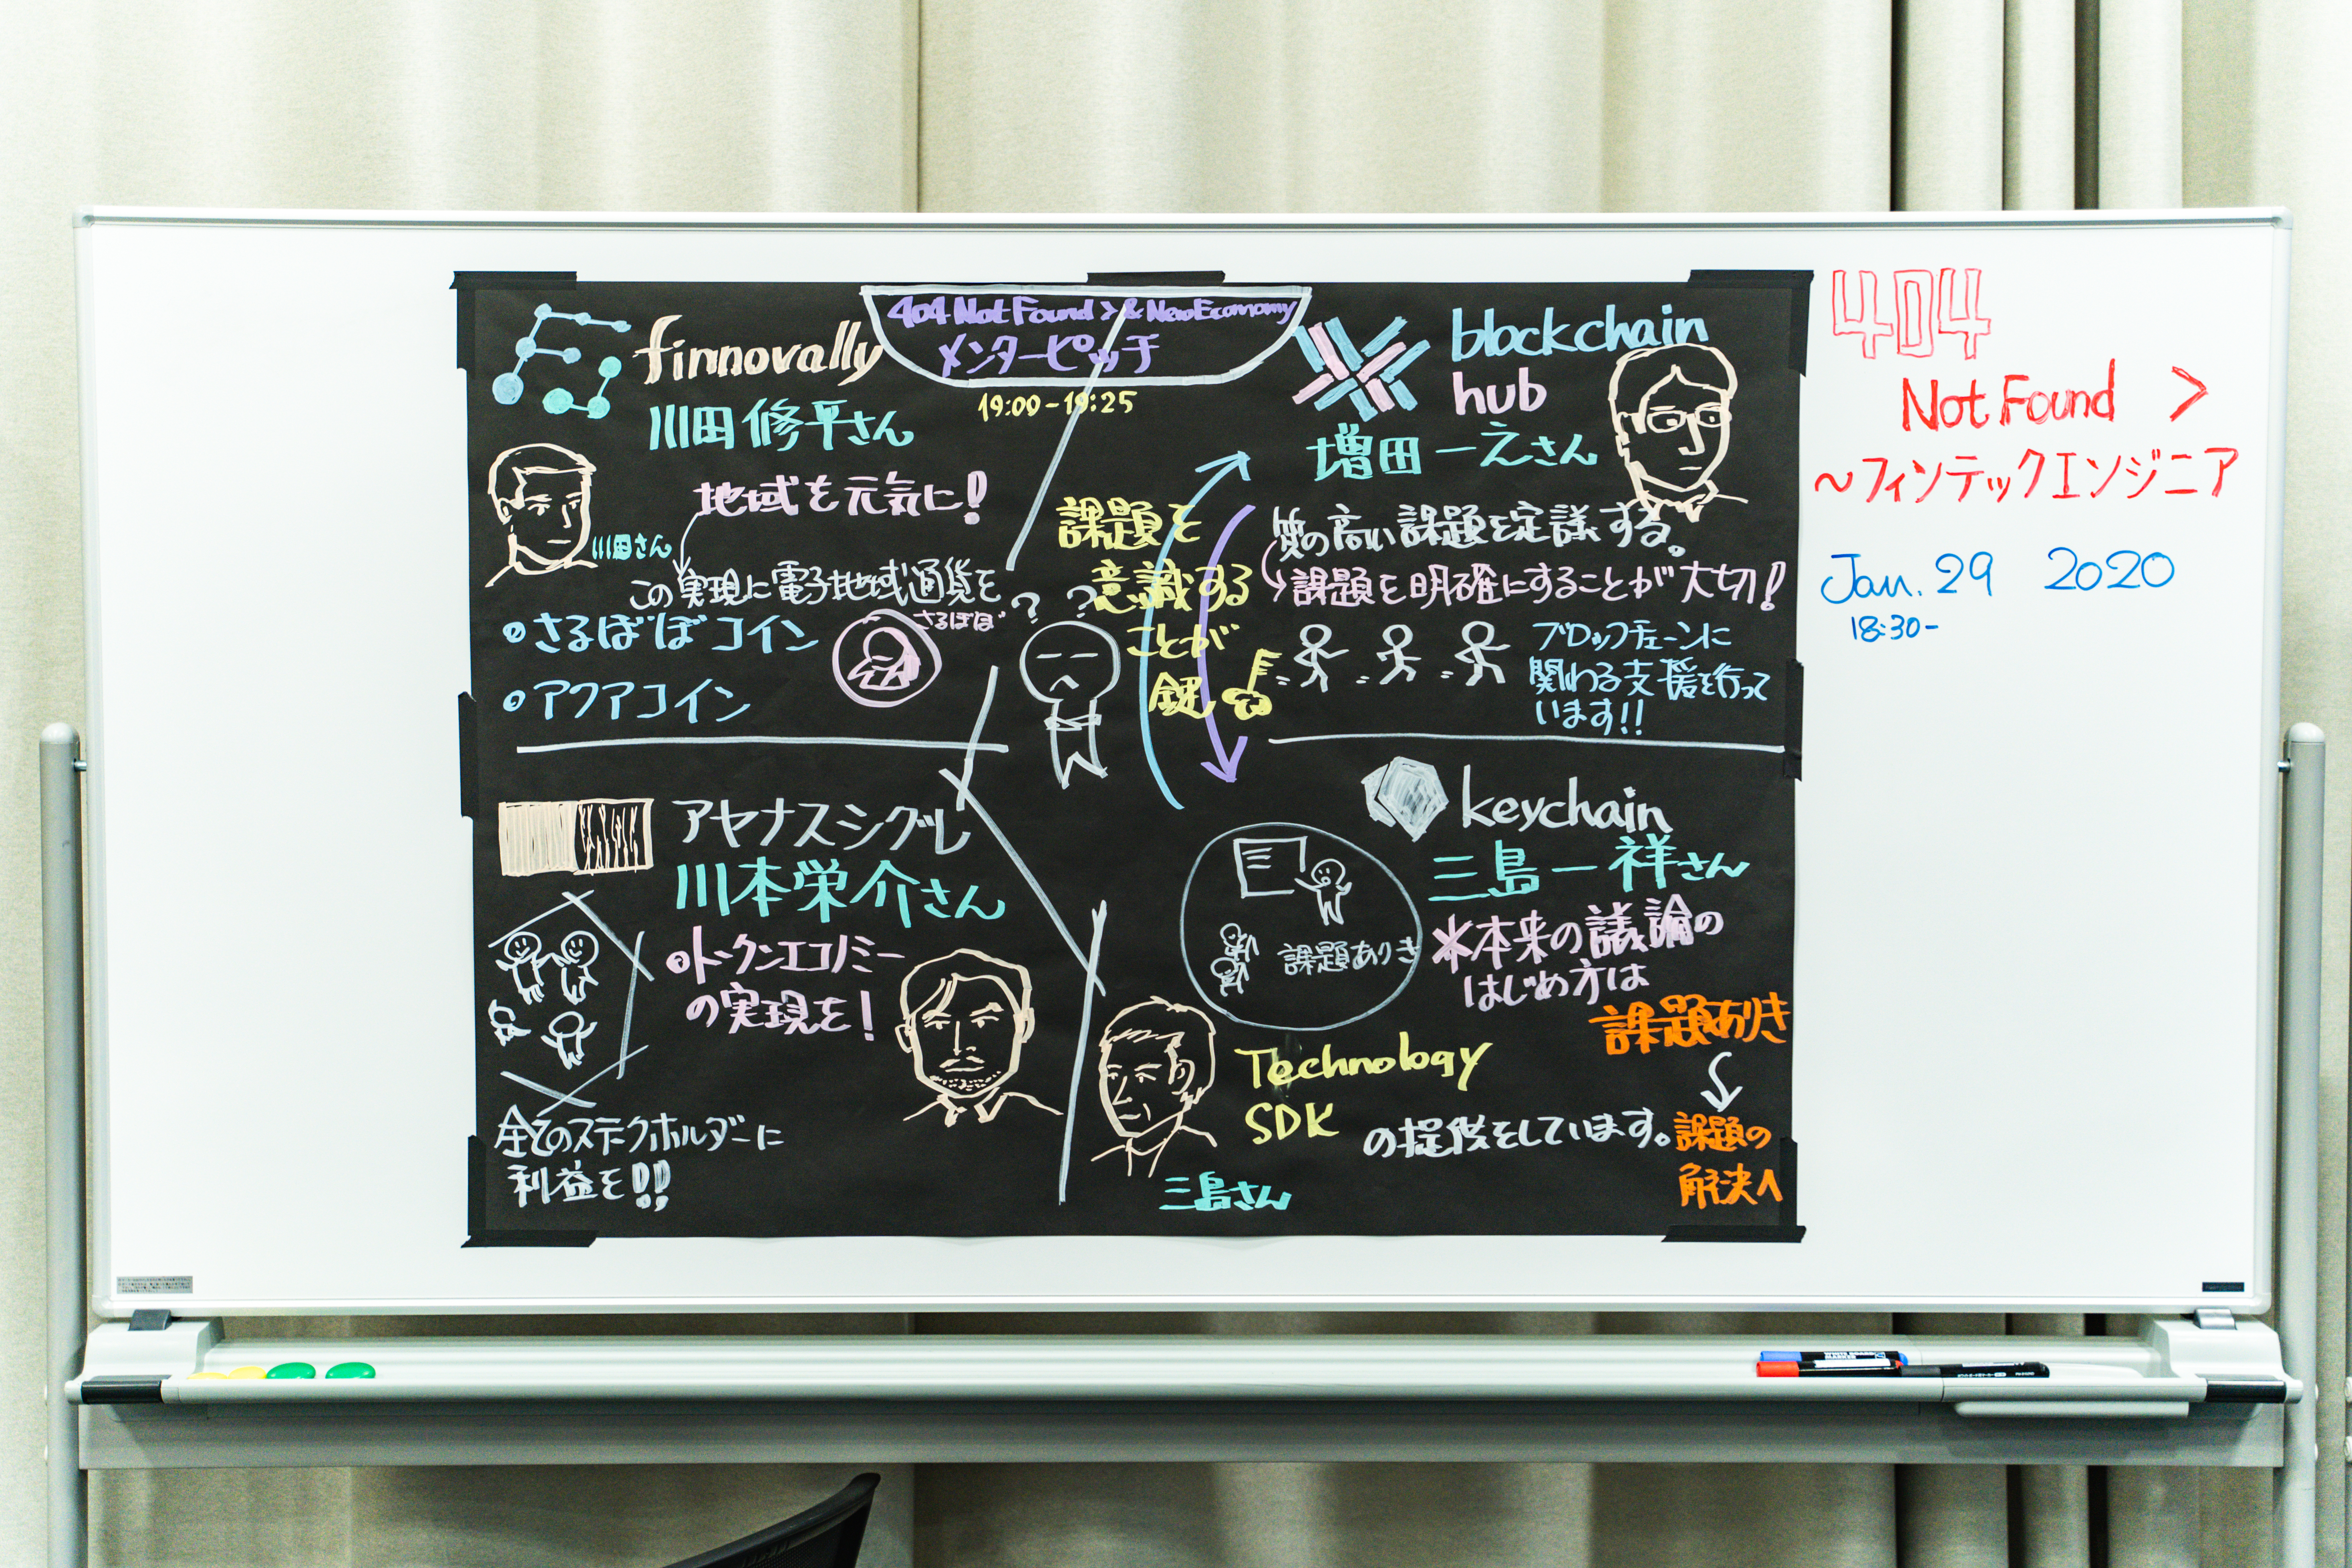 404 Not Found > & New Economy
メンターピッチ
19:00-19:25
finnovally
川田修平さん
川田さん
地域を元気に!
この実現に電子地域通貨を
・さるぼぼコイン
さるぼぼ
・アクアコイン
? ?
課題を
意識する
ことが
鍵
blockchain
hub
増田一之さん
質の高い課題を定議する。
課題を明確にすることが大切!
ブロックチェーンに
関わる支援を行って
います!!
アヤナスシグレ
川本栄介さん
・トークンエコノミー
の実現を!
全てのステークホルダーに
利益を!!
keychain
三島一祥さん
課題ありき
*本来の議論の
はじめ方は
課題ありき
課題の
解決へ
Technology
SDK
の提供をしています。
三島さん
404
Not Found >
~フィンテックエンジニア
Jan. 29 2020
18:30-